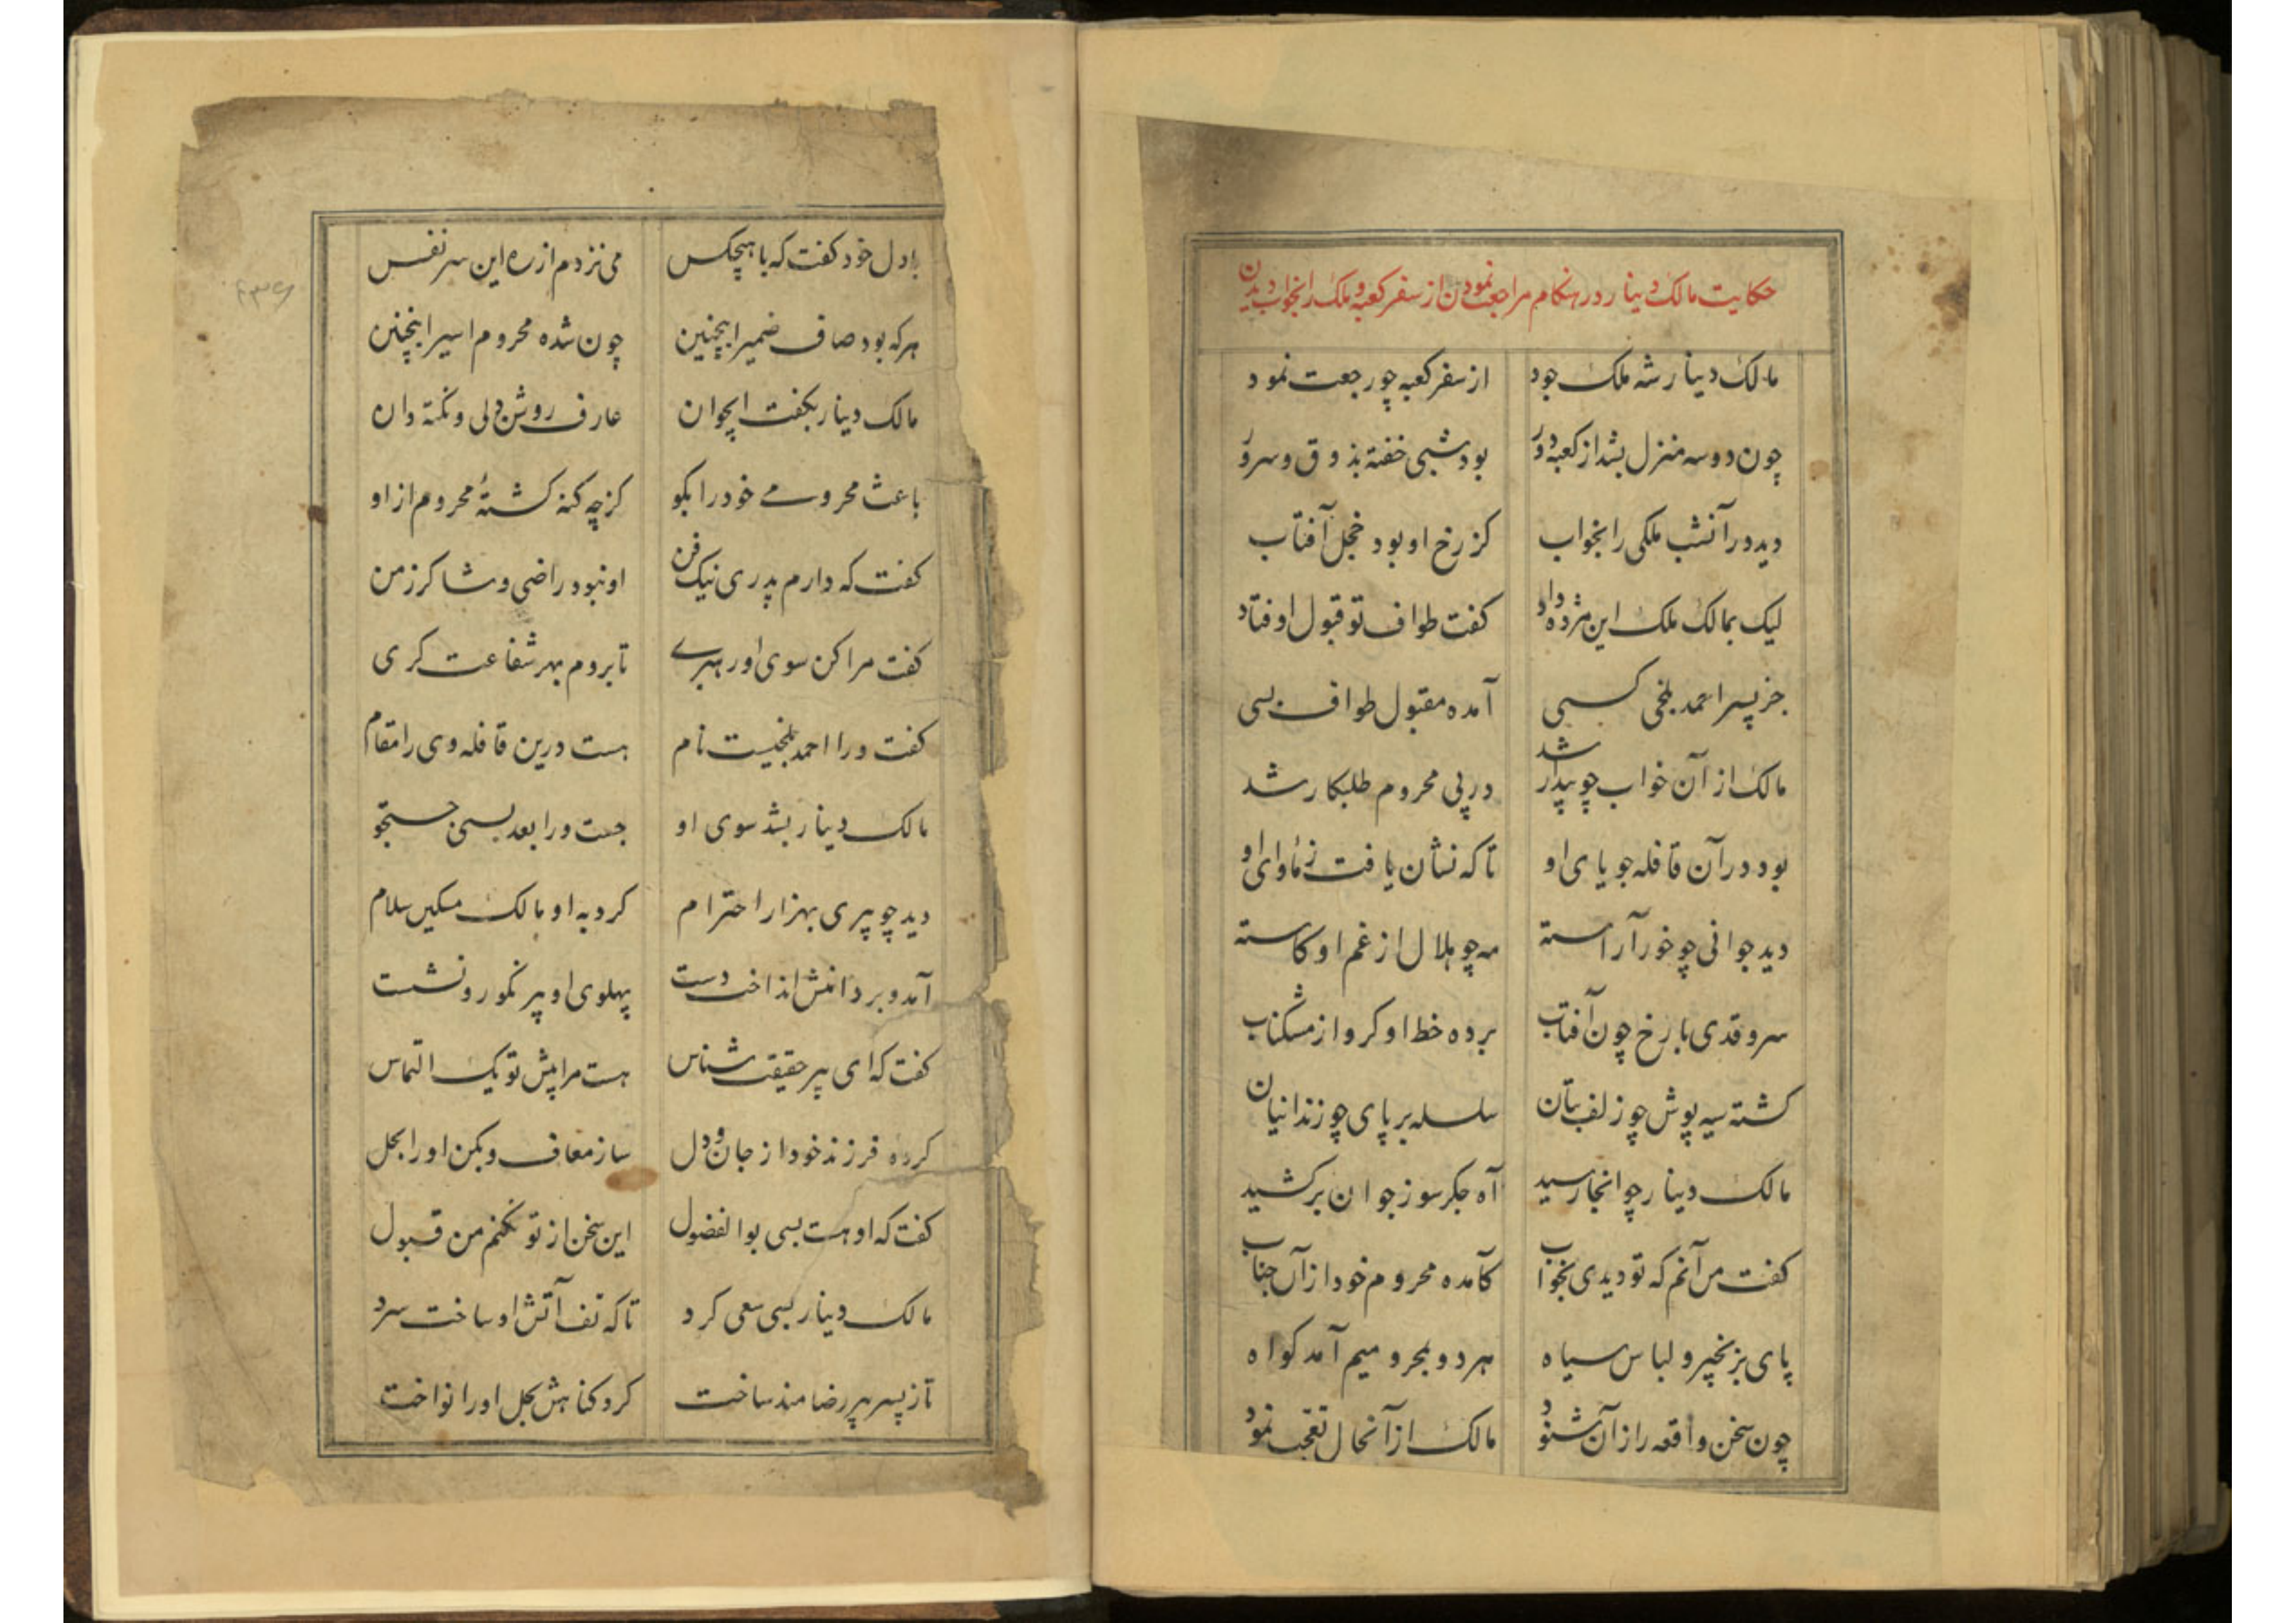 حکایت مالک دینار در هنکام مراجعت نمودن از سفر کعبه و ملک را بخواب دیدن
مالک دینار شه ملک جود از سفر کعبه چو رجعت نمود
چون دو سه منزل بشد از کعبه دور بود شبی خفته بذوق و سرور
دید در آنشب ملکی را بخواب کز رخ او بود خجل آفتاب
لیک بمالک ملک این مژده داد کفت طواف تو قبول اوفتاد
جز پسر احمد بلخی کسی آمده مقبول طواف بسی
مالک از آن خواب چو بیدار شد در پی محروم طلبکار شد
بود در آن قافله جویای او تا که نشان یافت ز مأوای او
دید جوانی چو خور آراسته مه چو هلال از غم او کاسته
سرو قدی با رخ چون آفتاب برده خط او کرو از مشکناب
کشته سیه پوش چو زلف بتان سلسله بر پای چو زندانیان
مالک دینار چو آنجا رسید آه جکر سوز جوان برکشید
کفت من آنم که تو دیدی بخواب کآمده محروم خود از آن جناب
پای بزنجیر و لباس سیاه هر دو بمحرومیم آمد کواه
چون سخن واقعه را زان شنود مالک از آنحال تعجب نمود
با دل خود کفت که با هیچکس می نزدم از ره این سر نفس
هر که بود صاف ضمیر اینچنین چون شده محروم اسیر اینچنین
مالک دینار بکفت ایجوان عارف روشن دلی و نکته دان
باعث محرومی خود را بکو کز چه کنه کشتهٔ محروم ازو
کفت که دارم پدری نیک فن او نبود راضی و شاکر ز من
کفت مرا کن سوی او رهبری تا بروم بهر شفاعت کری
کفت ورا احمد بلخیست نام هست درین قافله وی را مقام
مالک دینار بشد سوی او جست ورا بعد بسی جستجو
دید چو پیری بهزار احترام کرد به او مالک مسکین سلام
آمد و بر دامنش انداخت دست پهلوی او پیر نکورو نشست
کفت که ای پیر حقیقت شناس هست مرا پیش تو یک التماس
کرده فرزند خود از جان و دل ساز معاف و بکن او را بحل
کفت که او هست بسی بوالفضول این سخن از تو نکنم من قبول
مالک دینار بسی سعی کرد تا که تف آتش او ساخت سرد
تا ز پسر پیر رضامند ساخت کرد کناهش بحل او را نواخت